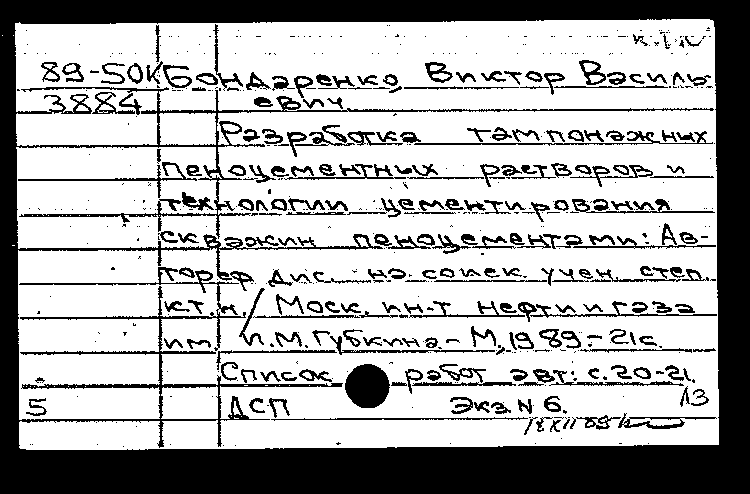 к.т.н
89-50К Бондаренко, Виктор Василь-
3884 евич.
Разработка тампонажных
пеноцементных растворов и
технологии цементирования
скважин пеноцементами: Ав-
тореф дис. на соиск. учен. степ.
к.т.н. / Моск. ин-т нефти и газа
им. И.М. Губкина. - М., 1989. - 21с.
Список работ авт.: с. 20-21.
5 ДСП Экз. N 6. 13